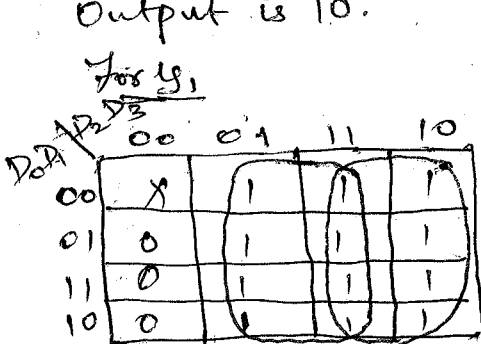 Output is 10.
For y₁
D₀D₁ D₂D₃ 00 01 11 10
00 X 1 1 1
01 0 1 1 1
11 0 1 1 1
10 0 1 1 1